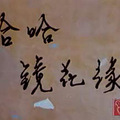 哈哈
镜花缘